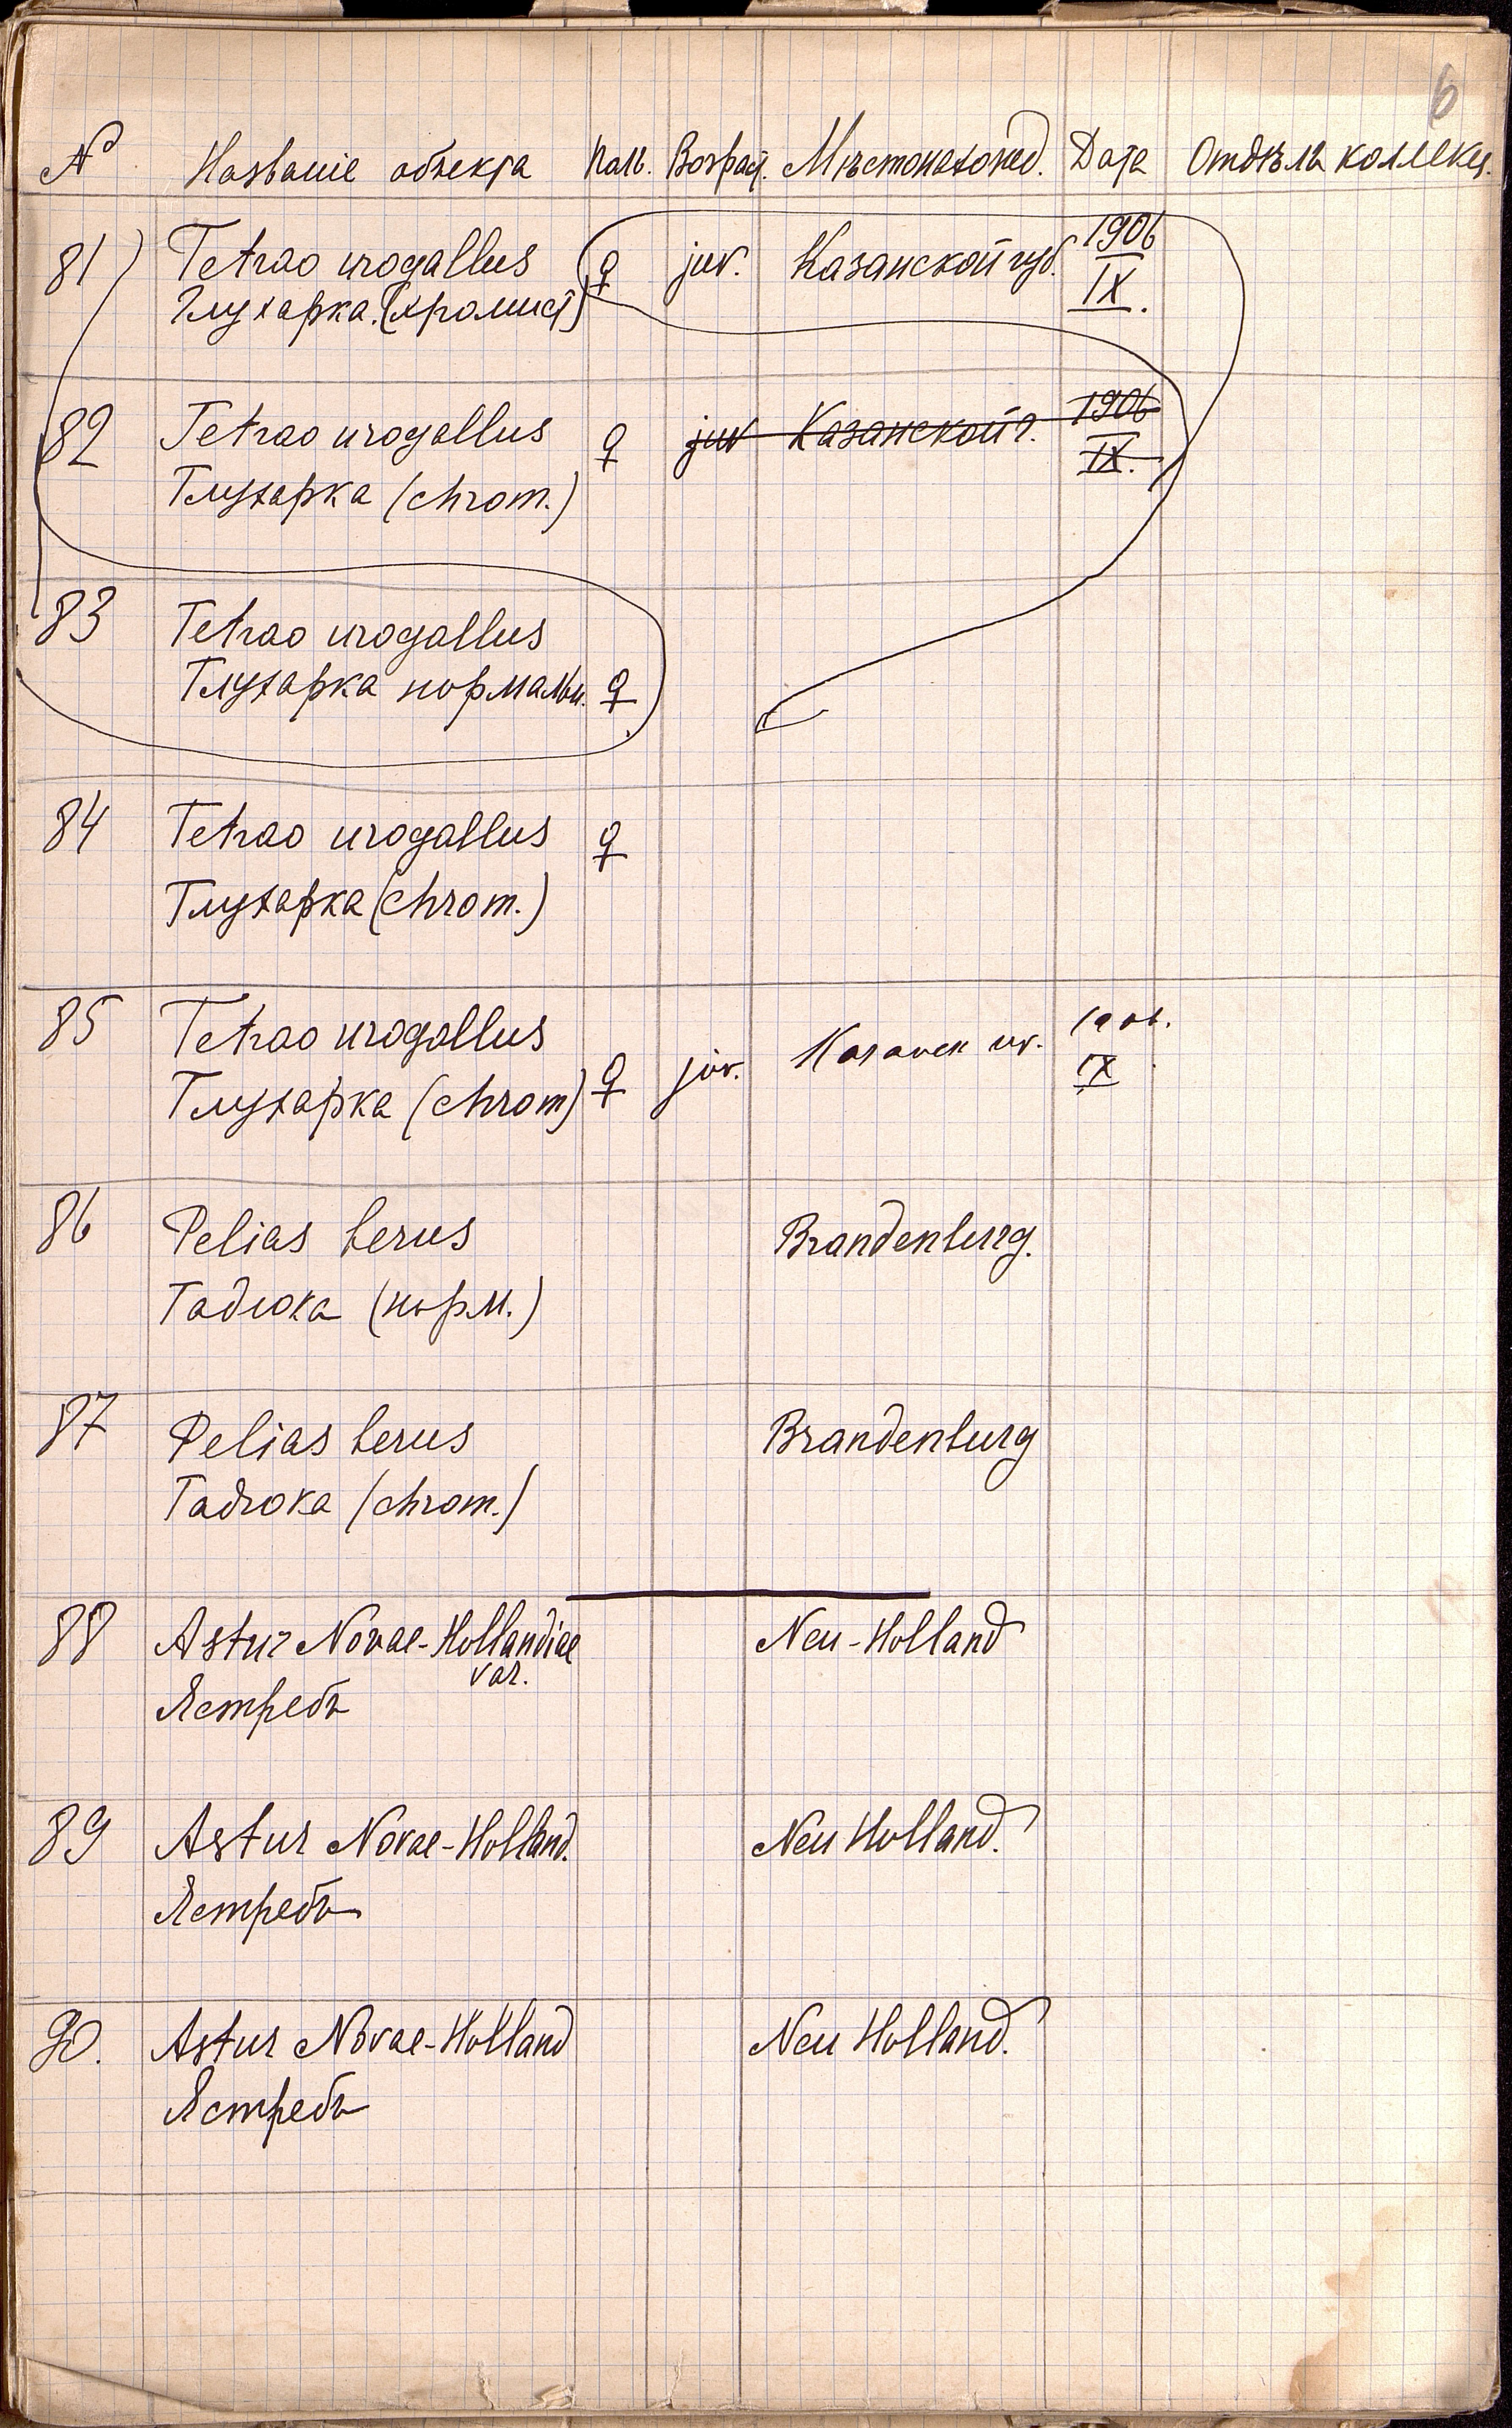 6
№ Названіе объекта Полъ. Возраст. Мѣстонахожд. Дата Отдѣлъ коллекц.
81) Tetrao urogallus ♀ juv. Казанской губ. 1906
Глухарка (хромист) IX.
82 Tetrao urogallus ♀ juv Казанской г. 1906
Глухарка (chrom.) IX.
83 Tetrao urogallus
Глухарка нормальн. ♀
84 Tetrao urogallus ♀
Глухарка (chrom.)
85 Tetrao urogallus 1906.
Глухарка (chrom) ♀ juv. Казанск IX
86 Pelias berus Brandenburg.
Гадюка (норм.)
87 Pelias berus Brandenburg
Гадюка (chrom.)
88 Astur Novae-Hollandiae Neu-Holland
var.
Ястребъ
89 Astur Novae-Holland. Neu Holland.
Ястребъ
90. Astur Novae-Holland Neu Holland.
Ястребъ